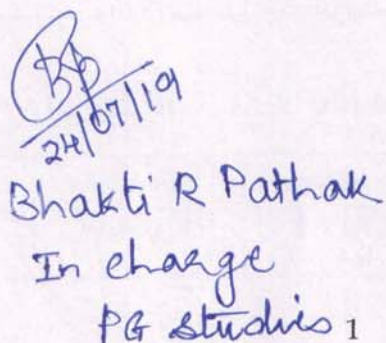 24/07/19
Bhakti R Pathak
In charge
PG studies 1